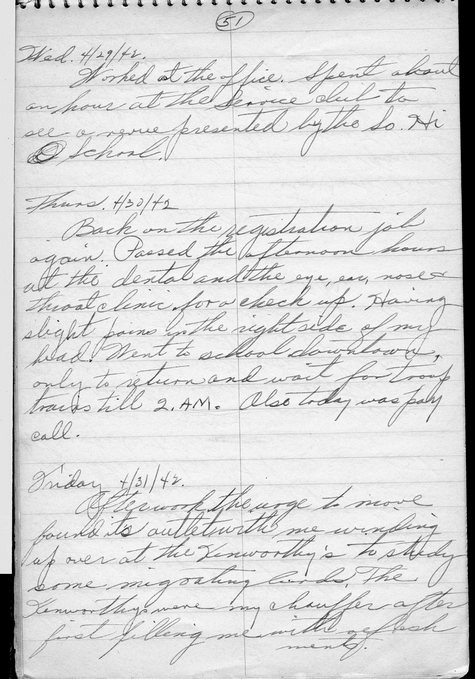 51
Wed. 4/29/42.
Worked at the office. Spent about
an hour at the Service club to
see a revue presented by the So. Hi
School.
Thurs. 4/30/42
Back on the registration job
again. Passed the afternoon hours
at the dental and the eye, ear, nose &
throat clinic for a check up. Having
slight pains in the right side of my
head. Went to school downtown,
only to return and wait for troop
trains till 2. AM. Also today was pay
call.
Friday 4/31/42.
After work the urge to move
found its outlet with me winding
up over at the Kenworthy's to study
some migrating birds. The
Kenworthys were my chauffer after
first filling me with refresh
ments.